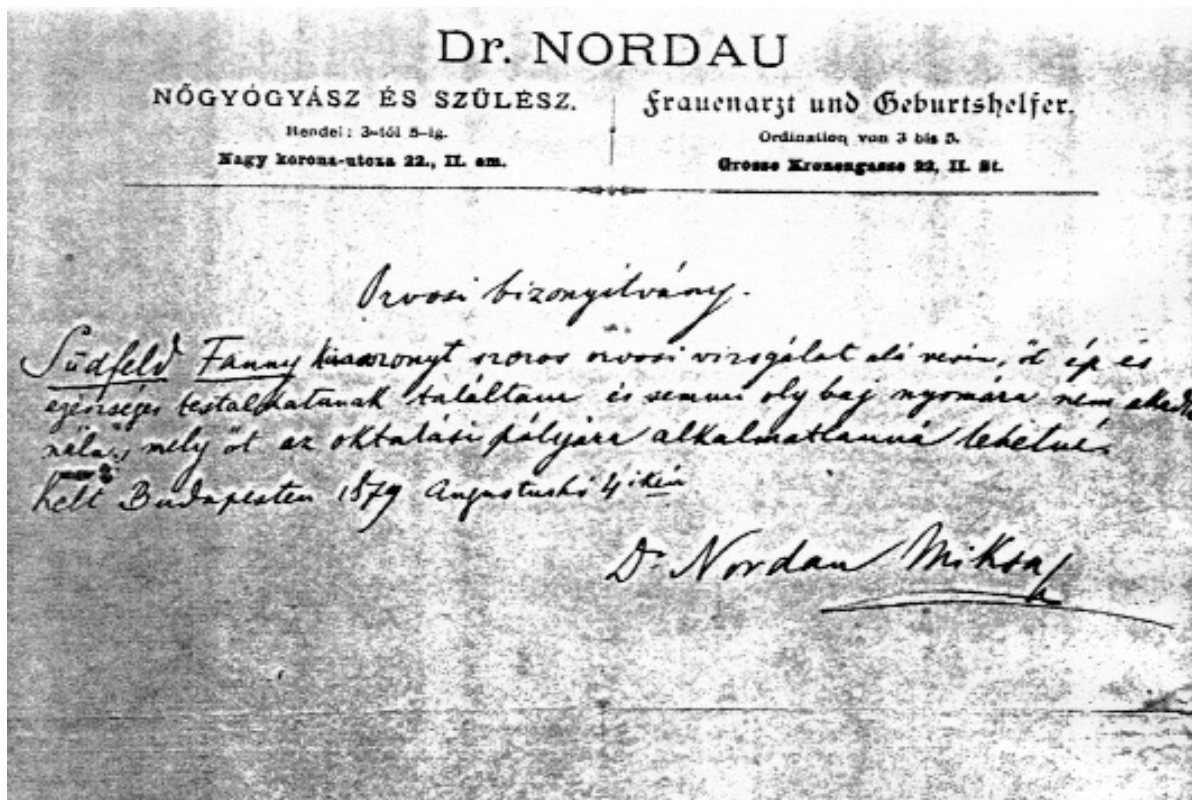 Dr. NORDAU
NŐGYÓGYÁSZ ÉS SZÜLÉSZ.
Rendel: 3-tól 5-ig.
Nagy korona-utcza 22., II. em.
Frauenarzt und Geburtshelfer.
Ordination von 3 bis 5.
Grosse Kronengasse 22, II. St.
Orvosi bizonyítvány.
Südfeld Fanny kisasszonyt szoros orvosi vizsgálat alá vevén, őt ép és
egészséges testalkatunak találtam és semmi oly baj nyomára nem akadtam
nála, mely őt az oktatási pályára alkalmatlanná tehetné.
Kelt Budapesten 1879 Augustushó 4ikén
Dr Nordau Miksa